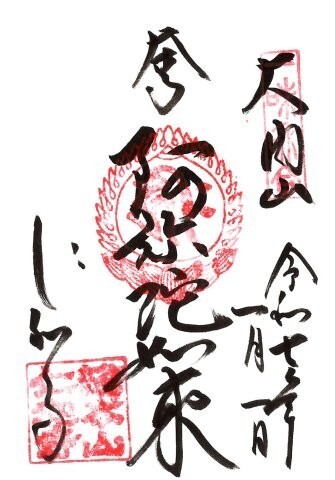 大内山
令和七年
一月一日
奉
阿弥陀如来
仁和寺